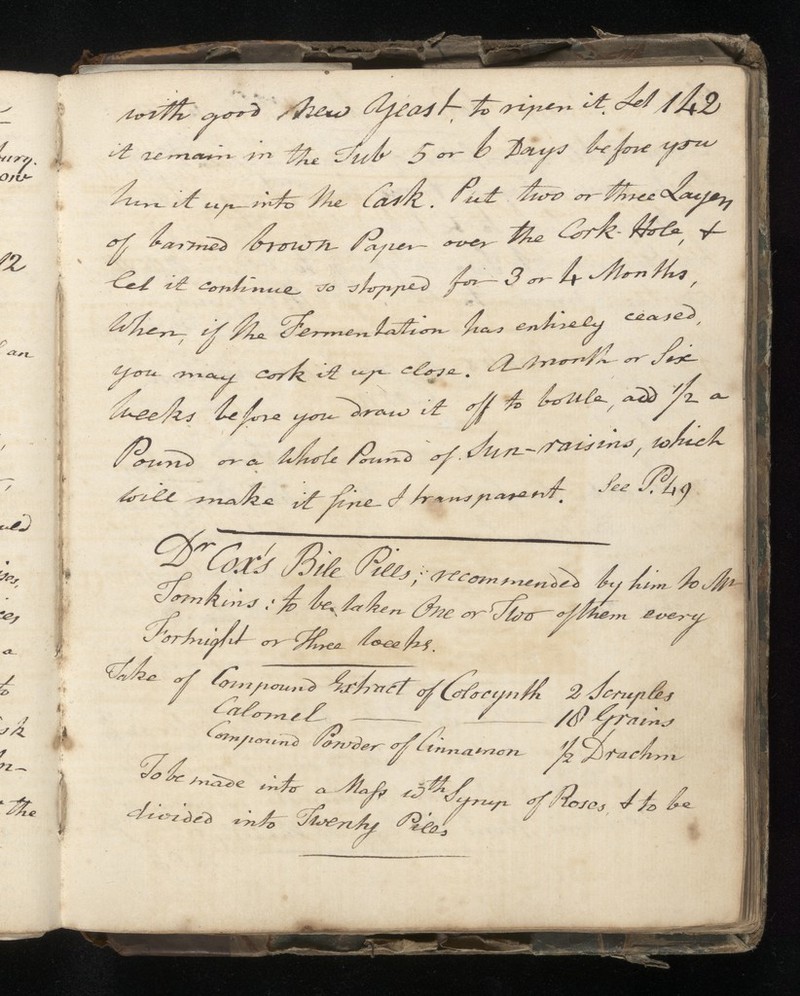 burg.
12
an
a
to
the
with good new Yeast, to ripen it. Let 142
it remain in the Tub 5 or 6 Days before you
tun it up into the Cask. Put two or three Layers
of barmed brown Paper over the Cork-Hole, &
let it continue so stopped for 3 or 4 Months,
When, if the Fermentation has entirely ceased,
you may cork it up close. A month or Six
Weeks before you draw it off to bottle, add 1/2 a
Pound or a whole Pound of Sun-raisins, which
will make it fine & transparent. See P. 49
Dr Cox's Bile Pills; recommended by him to Mr
Tomkins: to be taken One or Two of them every
Fortnight or Three Weeks.
Take of Compound Extract of Colocynth 2 Scruples
Calomel — — 18 Grains
Compound Powder of Cinnamon 1/2 Drachm
To be made into a Mass with Syrup of Roses, & to be
divided into Twenty Pills